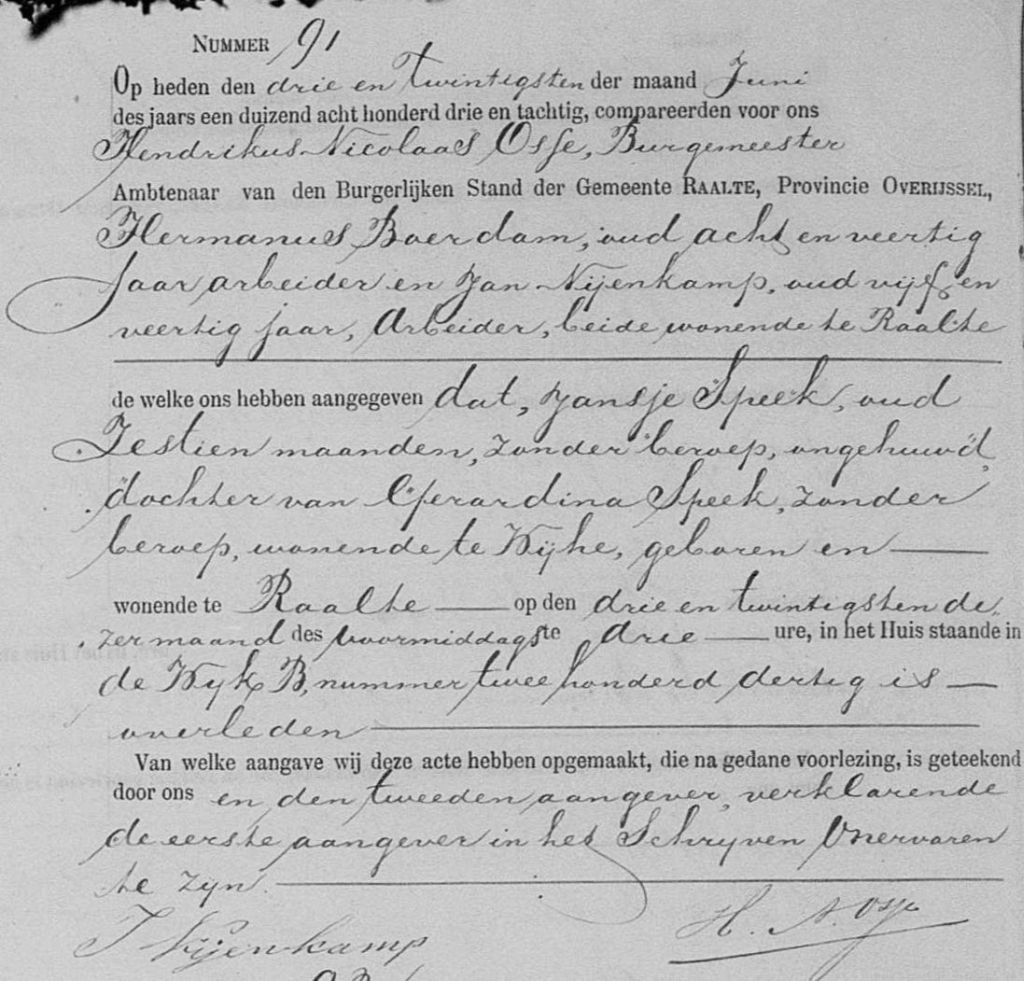 NUMMER 91
Op heden den drie en twintigsten der maand Juni
des jaars een duizend acht honderd drie en tachtig, compareerden voor ons
Hendrikus Nicolaas Osse, Burgemeester
Ambtenaar van den Burgerlijken Stand der Gemeente RAALTE, Provincie OVERIJSSEL,
Hermanus Boerdam, oud acht en veertig
jaar arbeider en Jan Nijenkamp, oud vijf en
veertig jaar, Arbeider, beide wonende te Raalte
de welke ons hebben aangegeven dat, Jansje Speek, oud
Zestien maanden, zonder beroep, ongehuwd,
dochter van Gerardina Speek, zonder
beroep, wonende te Wijhe, geboren en
wonende te Raalte op den drie en twintigsten de,
zer maand des voormiddags te drie ure, in het Huis staande in
de Wyk B, nummer twee honderd dertig is
overleden
Van welke aangave wij deze acte hebben opgemaakt, die na gedane voorlezing, is geteekend
door ons en den tweeden aangever, verklarende
de eerste aangever in het Schryven Onervaren
te zyn.
J Nijenkamp H. N. Osse